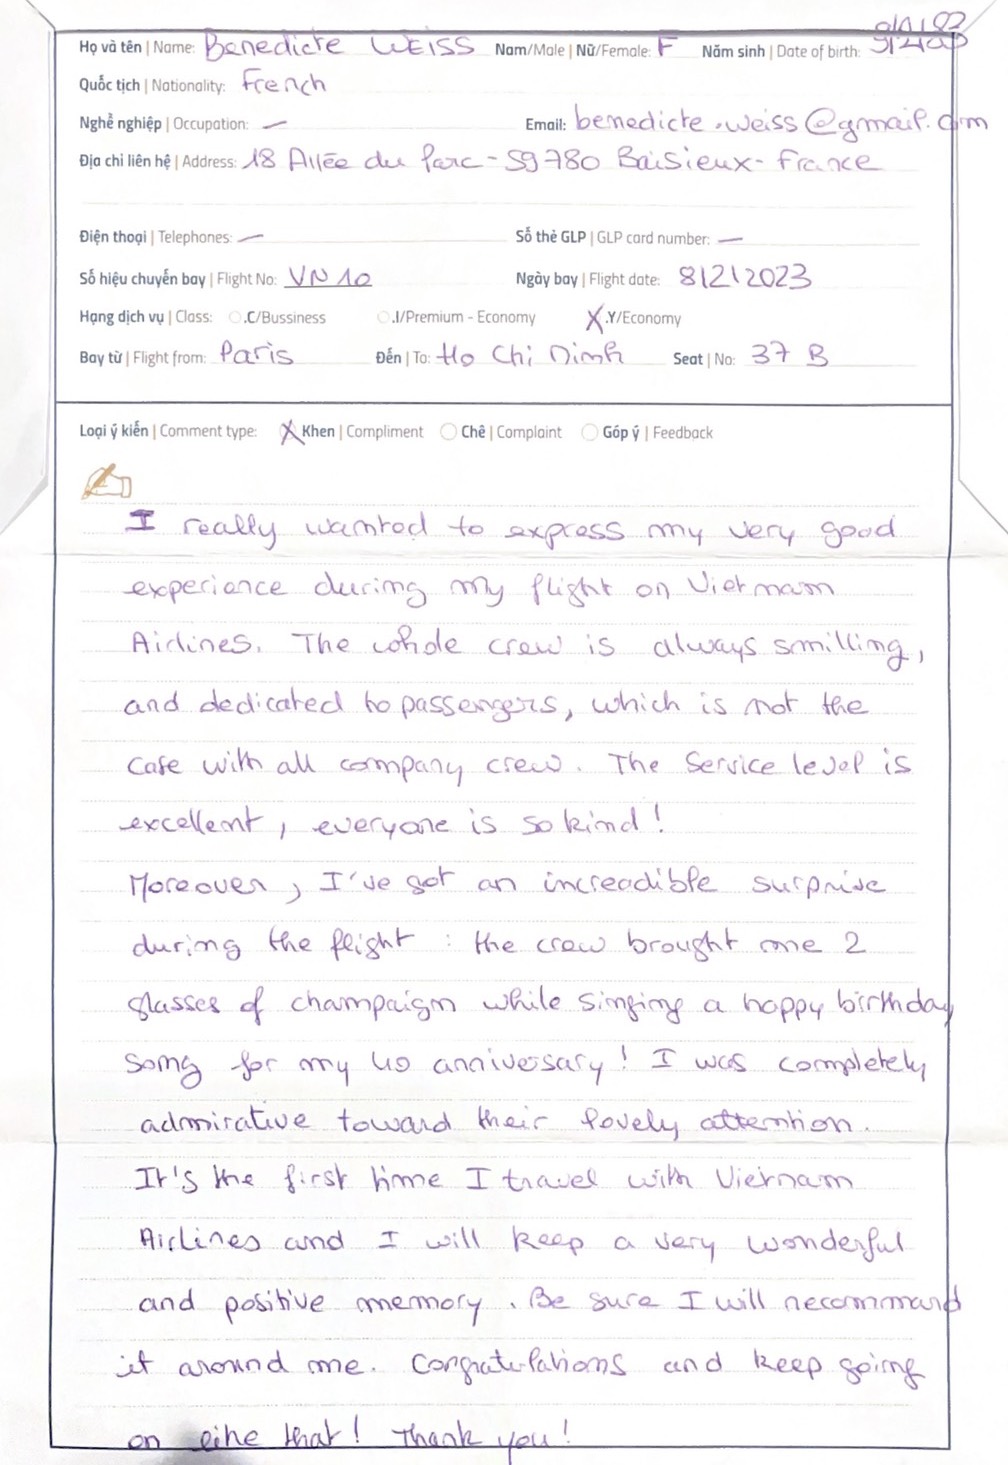 Họ và tên | Name: Benedicte WEISS Nam/Male | Nữ/Female: F Năm sinh | Date of birth:
Quốc tịch | Nationality: French
Nghề nghiệp | Occupation: — Email: benedicte.weiss@gmail.com
Địa chỉ liên hệ | Address: 18 Allée du Parc - 59780 Baisieux - France
Điện thoại | Telephones: — Số thẻ GLP | GLP card number: —
Số hiệu chuyến bay | Flight No: VN 10 Ngày bay | Flight date: 8/2/2023
Hạng dịch vụ | Class: .C/Bussiness .I/Premium - Economy X .Y/Economy
Bay từ | Flight from: Paris Đến | To: Ho Chi Minh Seat | No: 37 B
Loại ý kiến | Comment type: X Khen | Compliment Chê | Complaint Góp ý | Feedback
I really wanted to express my very good
experience during my flight on Vietnam
Airlines. The whole crew is always smilling,
and dedicated to passengers, which is not the
case with all company crew. The service level is
excellent, everyone is so kind!
Moreover, I've got an increadible surprise
during the flight : the crew brought me 2
glasses of champaign while singing a happy birthday
song for my 40 anniversary! I was completely
admirative toward their lovely attention.
It's the first time I travel with Vietnam
Airlines and I will keep a very wonderful
and positive memory. Be sure I will recommand
it around me. Congratulations and keep going
on like that! Thank you!